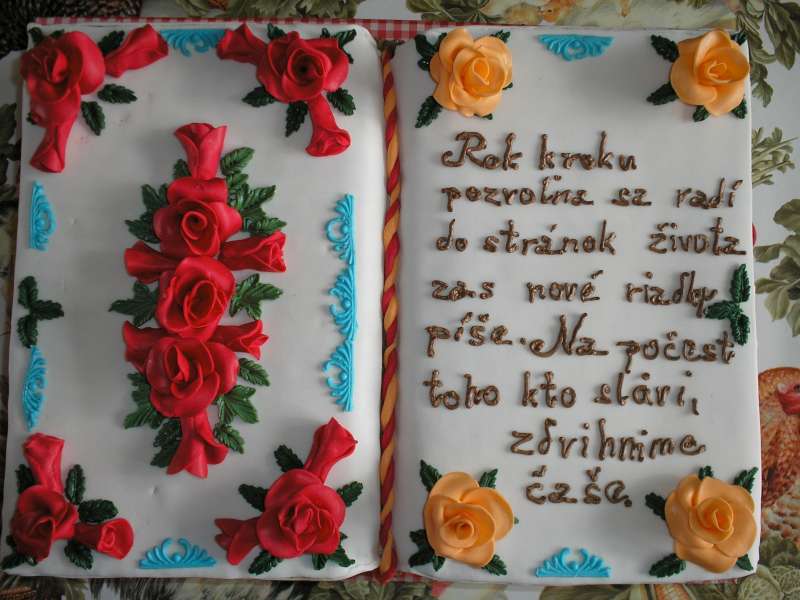 Rok kroku
pozvoľna sa radí
do stránok života
zas nové riadky
píše. Na počesť
toho kto slávi,
zdvihnime
čaše.